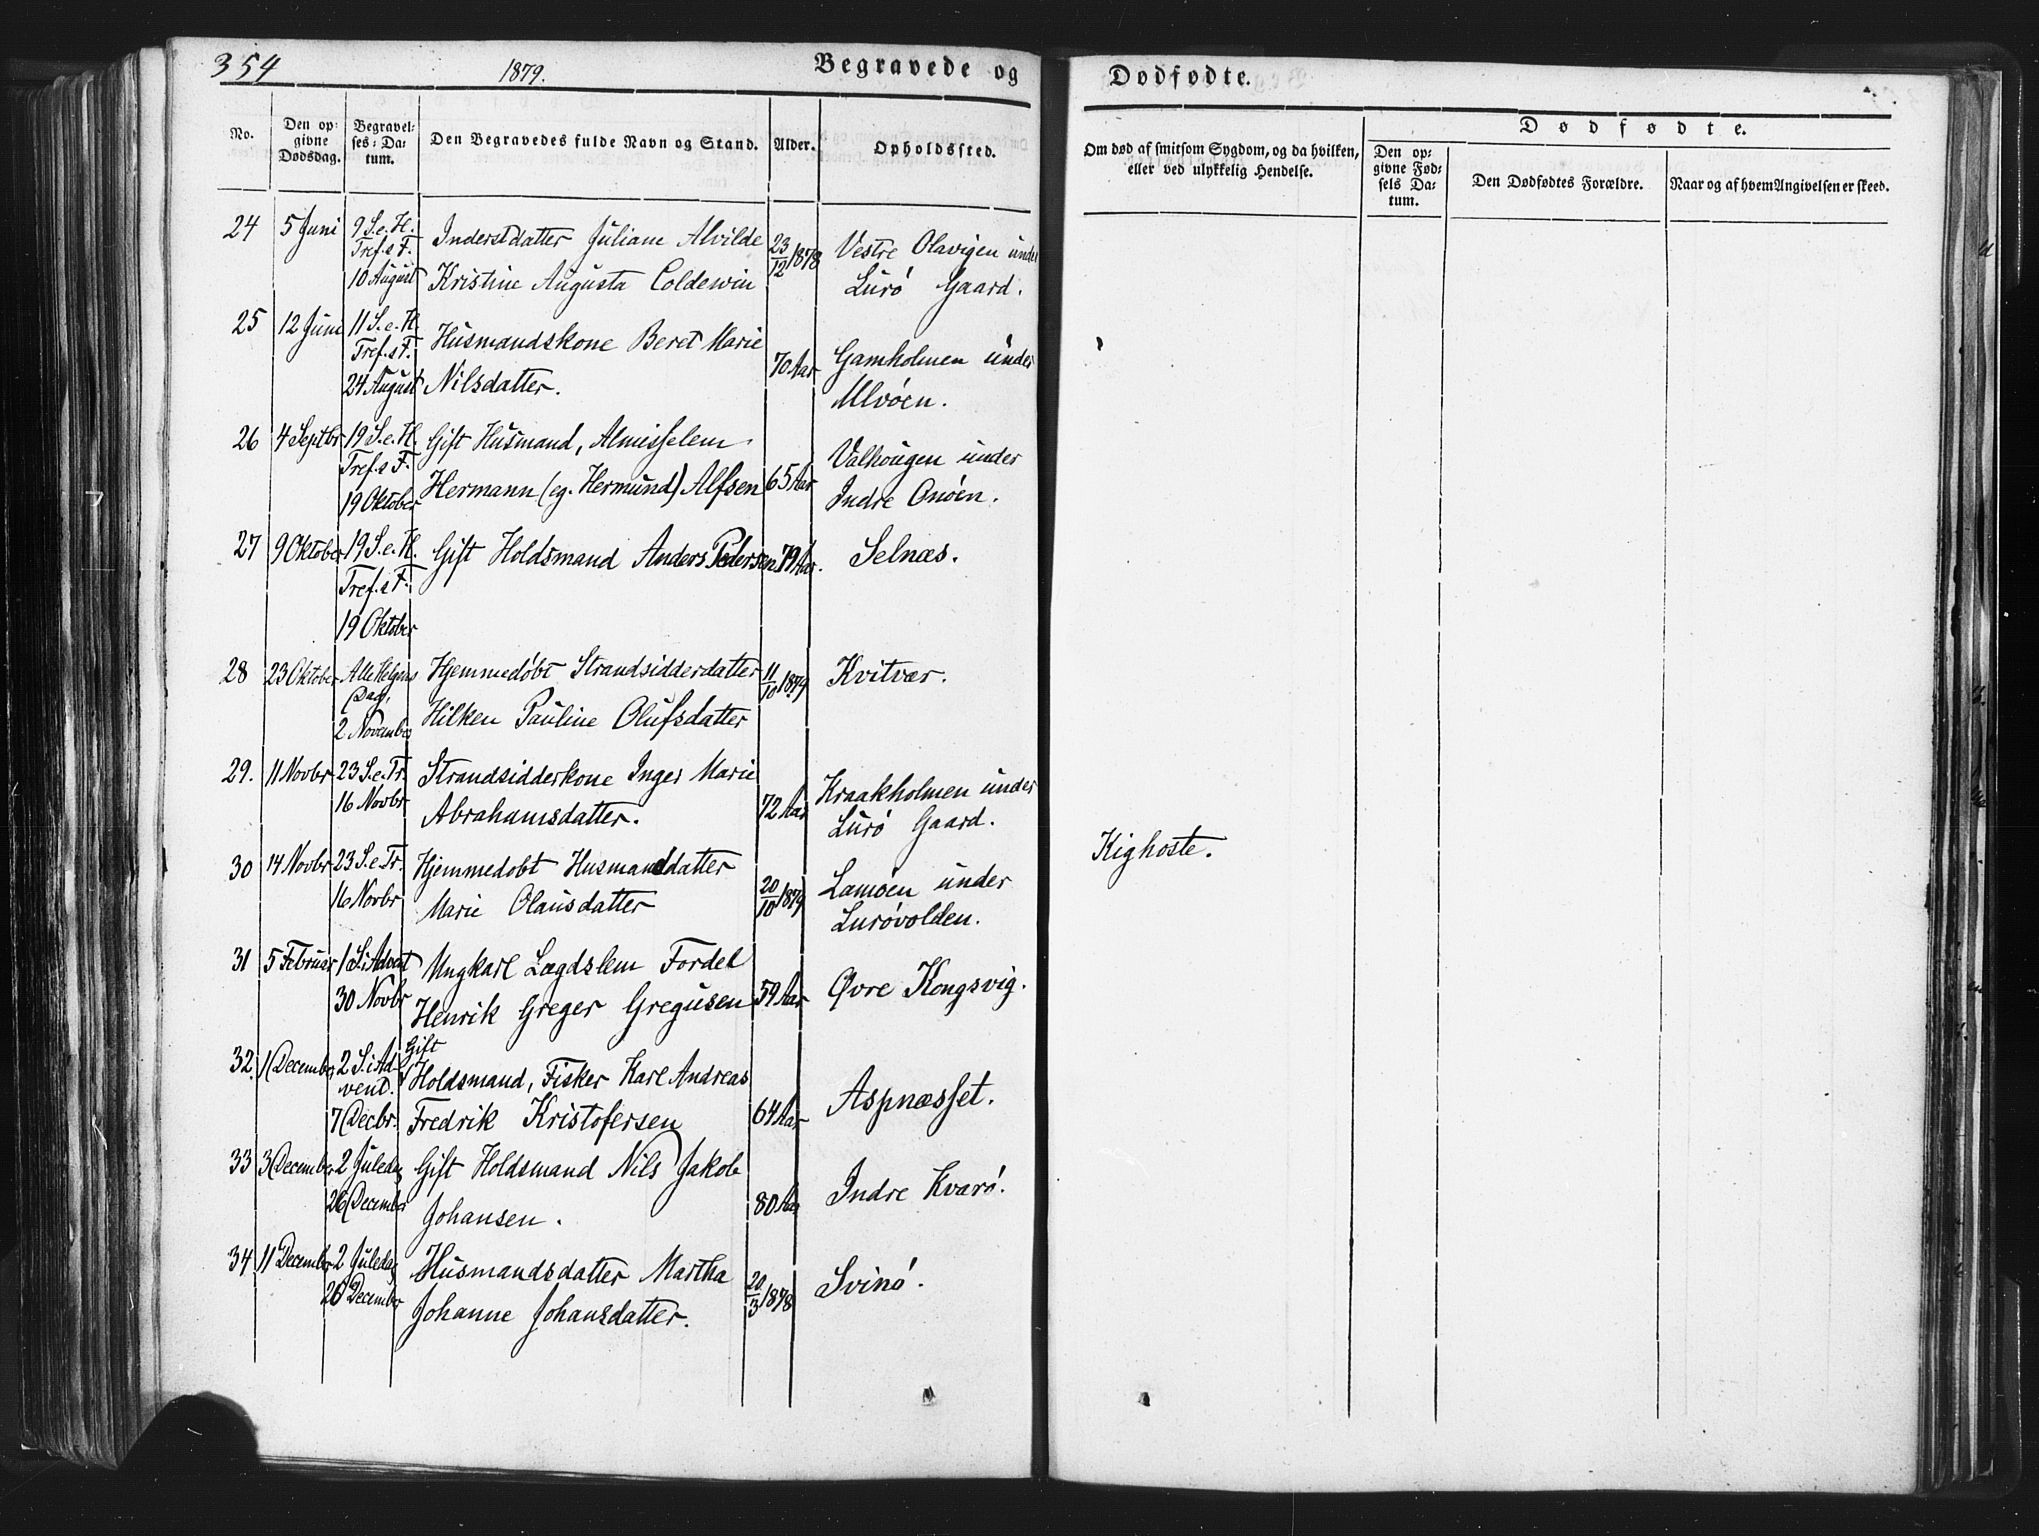 354
1879.
Begravede og
Dødfødte.
No.
Den op-
givne
Dødsdag.
Begravel-
ses-Da-
tum.
Den Begravedes fulde Navn og Stand.
Alder.
Opholdssted.
Om død af smitsom Sygdom, og da hvilken,
eller ved ulykkelig Hendelse.
Dødfødte.
Den op-
givne Fød-
sels Da-
tum.
Den Dødfødtes Forældre.
Naar og af hvem Angivelsen er skeed.
24 5 Juni 9 S. e. H.
Tref. s F.
10 August
Inderstdatter Juliane Alvilde
Kristine Augusta Coldewin
23/12 1878
Vestre Olavigen under
Lurö Gaard.
25 12 Juni 11 S. e. H.
Tref. s F.
24 August
Husmandskone Beret Marie
Nilsdatter.
70 Aar
Gamholmen under
Ulvöen.
26 4 Septbr 19 S. e. H.
Tref. s F.
19 Oktober
Gift Husmand, Almisselem
Hermann (eg. Hermund) Alfsen
65 Aar
Valhougen under
Indre Onöen.
27 9 Oktober 19 S. e. H.
Tref. s F.
19 Oktober
Gift Holdsmand Anders Pedersen
79 Aar.
Selnæs.
28 23 Oktober Alle Helgens
Dag,
2 November
Hjemmedöbt Strandsidderdatter
Hilken Pauline Olufsdatter
11/10 1879
Kvitvær.
29. 11 Novbr 23 S. e. Tr.
16 Novbr
Strandsidderkone Inger Marie
Abrahamsdatter.
72 Aar
Kraakholmen under
Lurö Gaard.
30 14 Novbr 23 S. e. Tr.
16 Novbr
Hjemmedobt Husmandsdatter
Marie Olausdatter
20/10 1879
Lamöen under
Lurövolden.
Kighoste.
31 5 Februar 1 S. i Advent
30 Novbr
Ungkarl Lægdslem Fordel
Henrik Greger Gregusen
59 Aar
Øvre Kongsvig.
32. 1 December 2 S. i Ad-
vent.
7 Decbr.
Gift
Holdsmand, Fisker Karl Andreas
Fredrik Kristofersen
64 Aar
Aspnæsset.
33 3 December 2 Juledag
26 December
Gift Holdsmand Nils Jakob
Johansen.
80 Aar
Indre Kvarö.
34 11 December 2 Juledag
26 December
Husmandsdatter Martha
Johanne Johansdatter.
20/3 1878
Svinö.